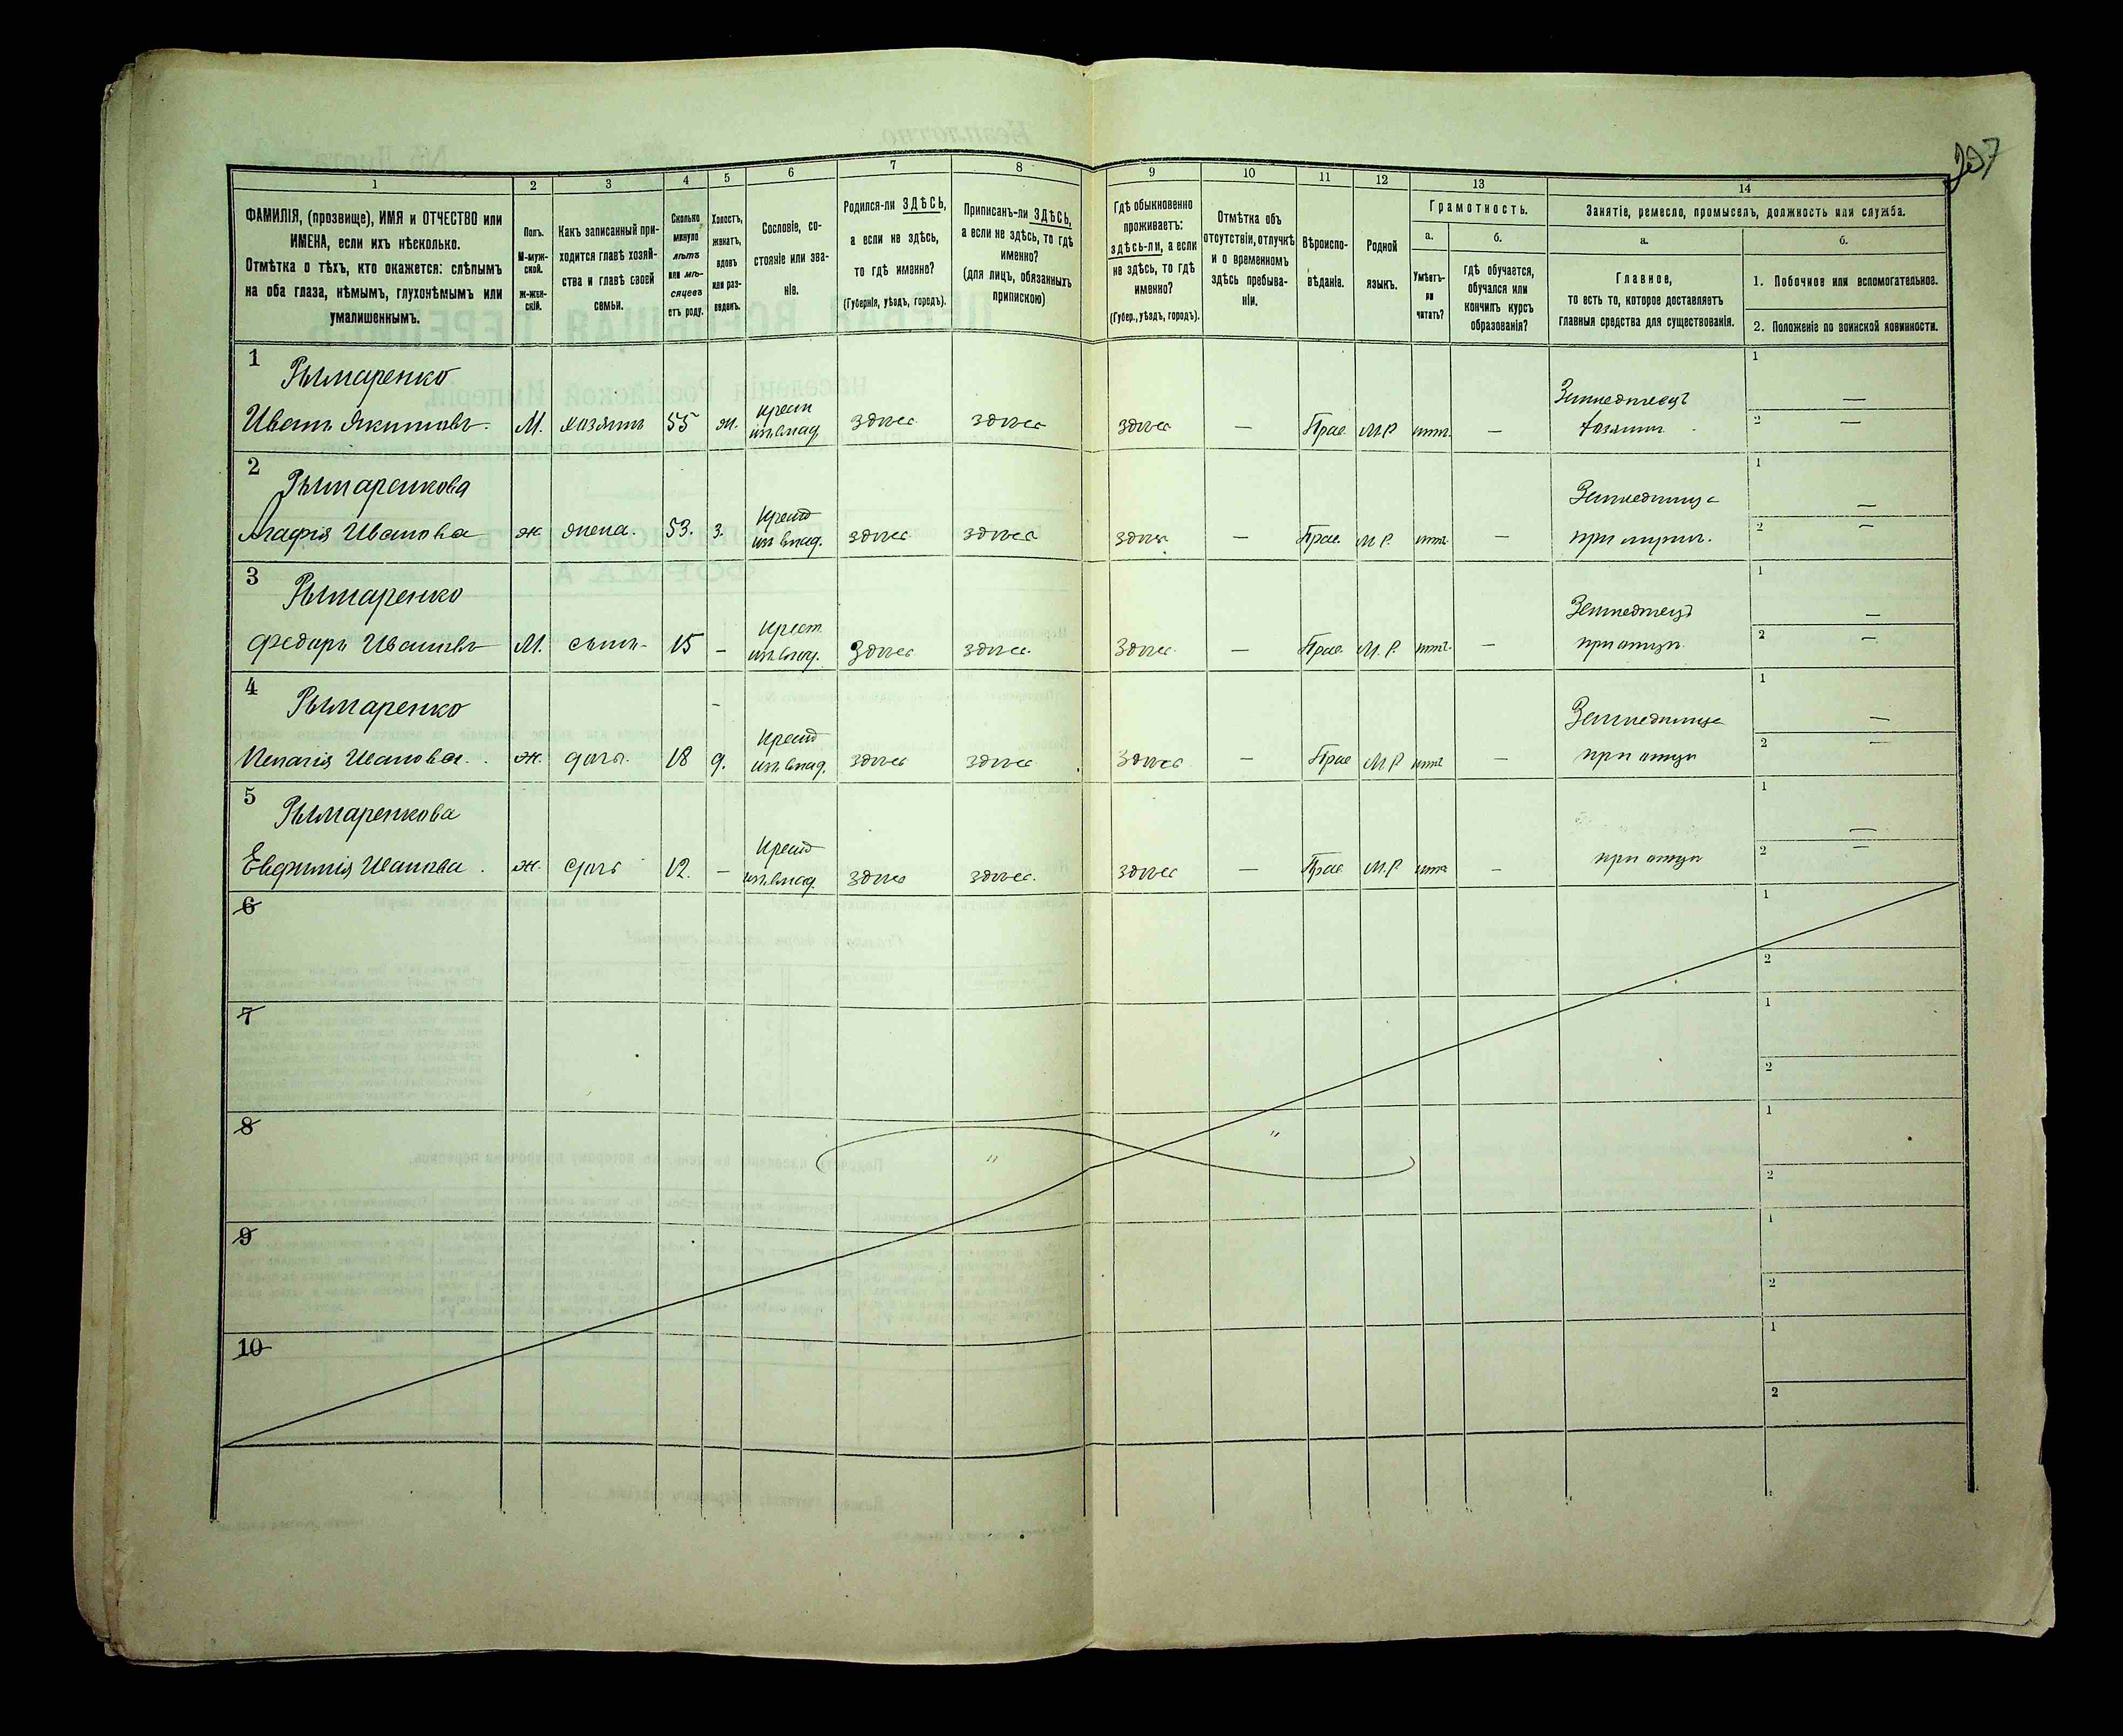 297
1 2 3 4 5 6 7 8 9 10 11 12 13 14
ФАМИЛІЯ, (прозвище), ИМЯ и ОТЧЕСТВО или
ИМЕНА, если ихъ нѣсколько.
Отмѣтка о тѣхъ, кто окажется: слѣпымъ
на оба глаза, нѣмымъ, глухонѣмымъ или
умалишеннымъ.
Полъ.
М-муж-
ской.
Ж-жен-
скій.
Какъ записанный при-
ходится главѣ хозяй-
ства и главѣ своей
семьи.
Сколько
минуло
лѣтъ
или мѣ-
сяцевъ
отъ роду.
Холостъ,
женатъ,
вдовъ
или раз-
веденъ.
Сословіе, со-
стояніе или зва-
ніе.
Родился-ли ЗДѢСЬ,
а если не здѣсь,
то гдѣ именно?
(Губернія, уѣздъ, городъ).
Приписанъ-ли ЗДѢСЬ,
а если не здѣсь, то гдѣ
именно?
(для лицъ, обязанныхъ
припискою)
Гдѣ обыкновенно
проживаетъ:
здѣсь-ли, а если
не здѣсь, то гдѣ
именно?
(Губер., уѣздъ, городъ).
Отмѣтка объ
отсутствіи, отлучкѣ
и о временномъ
здѣсь пребыва-
ніи.
Вѣроиспо-
вѣданіе.
Родной
языкъ.
Грамотность.
а.
Умѣетъ-
ли
читать?
б.
гдѣ обучается,
обучался или
кончилъ курсъ
образованія?
Занятіе, ремесло, промыселъ, должность или служба.
а.
Главное,
то есть то, которое доставляетъ
главныя средства для существованія.
б.
1. Побочное или вспомогательное.
2. Положеніе по воинской повинности.
1 Рымаренко крест Земледѣлецъ 1 —
Иванъ Якимовъ. М. хозяинъ 55 ж. изъ влад. здѣсь здѣсь здѣсь — Прав М.Р. нѣтъ — хозяинъ 2 —
2 Рымаренкова крест Земледѣлица 1 —
Агафія Иванова ж. жена. 53. з. изъ влад. здѣсь здѣсь здѣсь — Прав. М.Р. нѣтъ — при мужѣ. 2 —
3 Рымаренко крест Земледѣлецъ 1 —
Федоръ Ивановъ М. сынъ 15 — изъ влад. здѣсь здѣсь здѣсь — Прав. М.Р. нѣтъ — при отцѣ 2 —
4 Рымаренко крест Земледѣлица 1 —
Иванова ж. дочь 18 д. изъ влад. здѣсь здѣсь здѣсь — Прав М.Р. нѣтъ — при отцѣ 2 —
5 Рымаренкова крест 1 —
Евфимія Иванова ж. дочь 12. — изъ влад. здѣсь здѣсь здѣсь — Прав М.Р. нѣтъ — при отцѣ 2 —
6 1
2
7 1
2
8 1
2
9 1
2
10 1
2